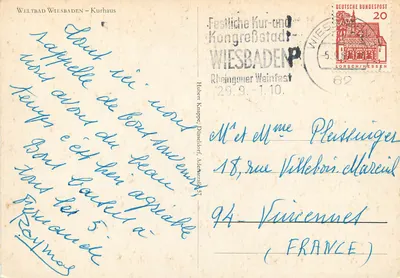 WELTBAD WIESBADEN – Kurhaus
Festliche Kur- und
Kongreßstadt
WIESBADEN
Rheingauer Weinfest
29.9.-1.10.
DEUTSCHE BUNDESPOST
20
LORSCH/HESSEN
62
Tout ici nous
rappelle de bons souvenirs,
nous avons du beau
temps, c'est bien agréable
Bons baisers à
vous les 5
Fernande
Raymond
Mr et Mme
18, rue Villebois-Mareuil
94 - Vincennes
(FRANCE)